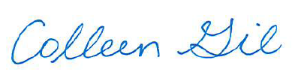 Colleen Gil